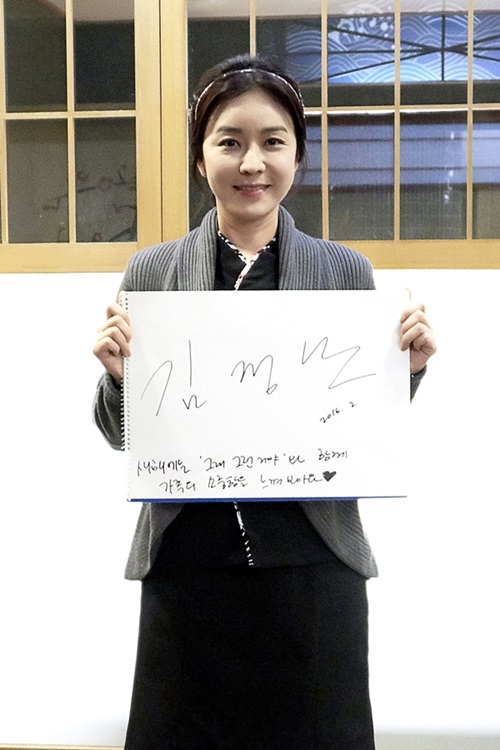 김정난
2016. 2
새해에는 '그래 그런거야'와 함께
가족의 소중함을 느껴보아요♥